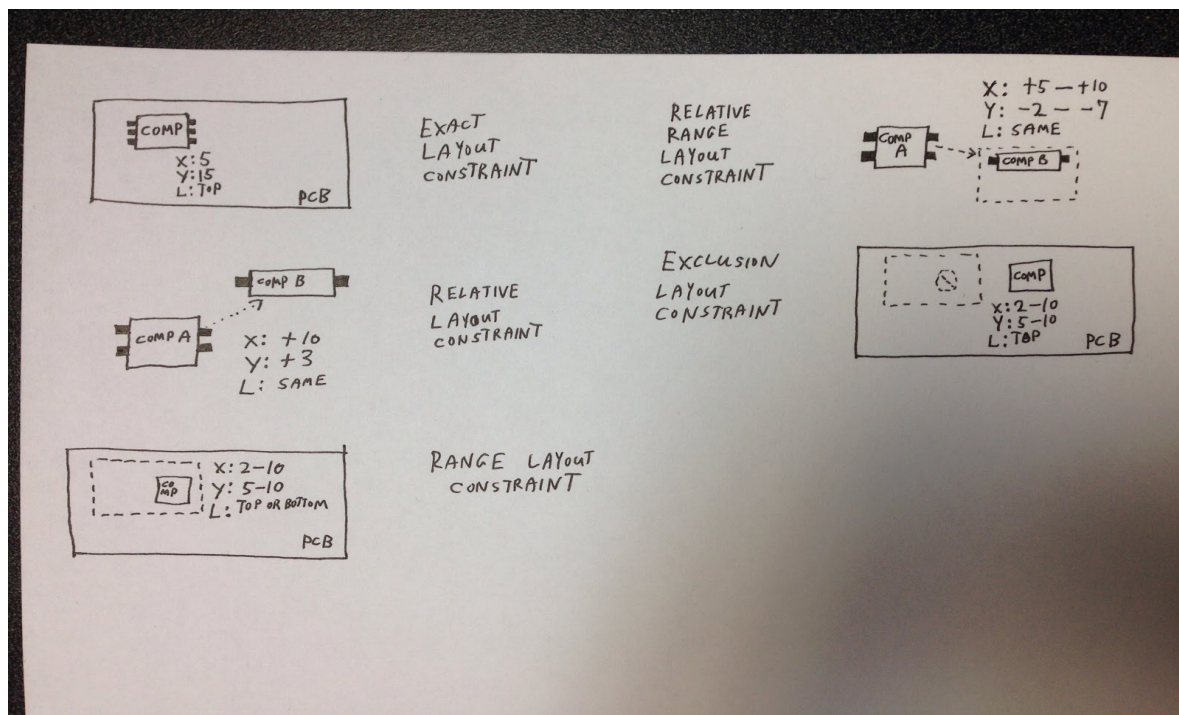 COMP
X: 5
Y: 15
L: TOP
PCB
EXACT
LAYOUT
CONSTRAINT
COMP B
COMP A
X: +10
Y: +3
L: SAME
RELATIVE
LAYOUT
CONSTRAINT
CO
MP
X: 2-10
Y: 5-10
L: TOP OR BOTTOM
PCB
RANGE LAYOUT
CONSTRAINT
RELATIVE
RANGE
LAYOUT
CONSTRAINT
X: +5 - +10
Y: -2 - -7
L: SAME
COMP
A
COMP B
EXCLUSION
LAYOUT
CONSTRAINT
COMP
X: 2-10
Y: 5-10
L: TOP
PCB